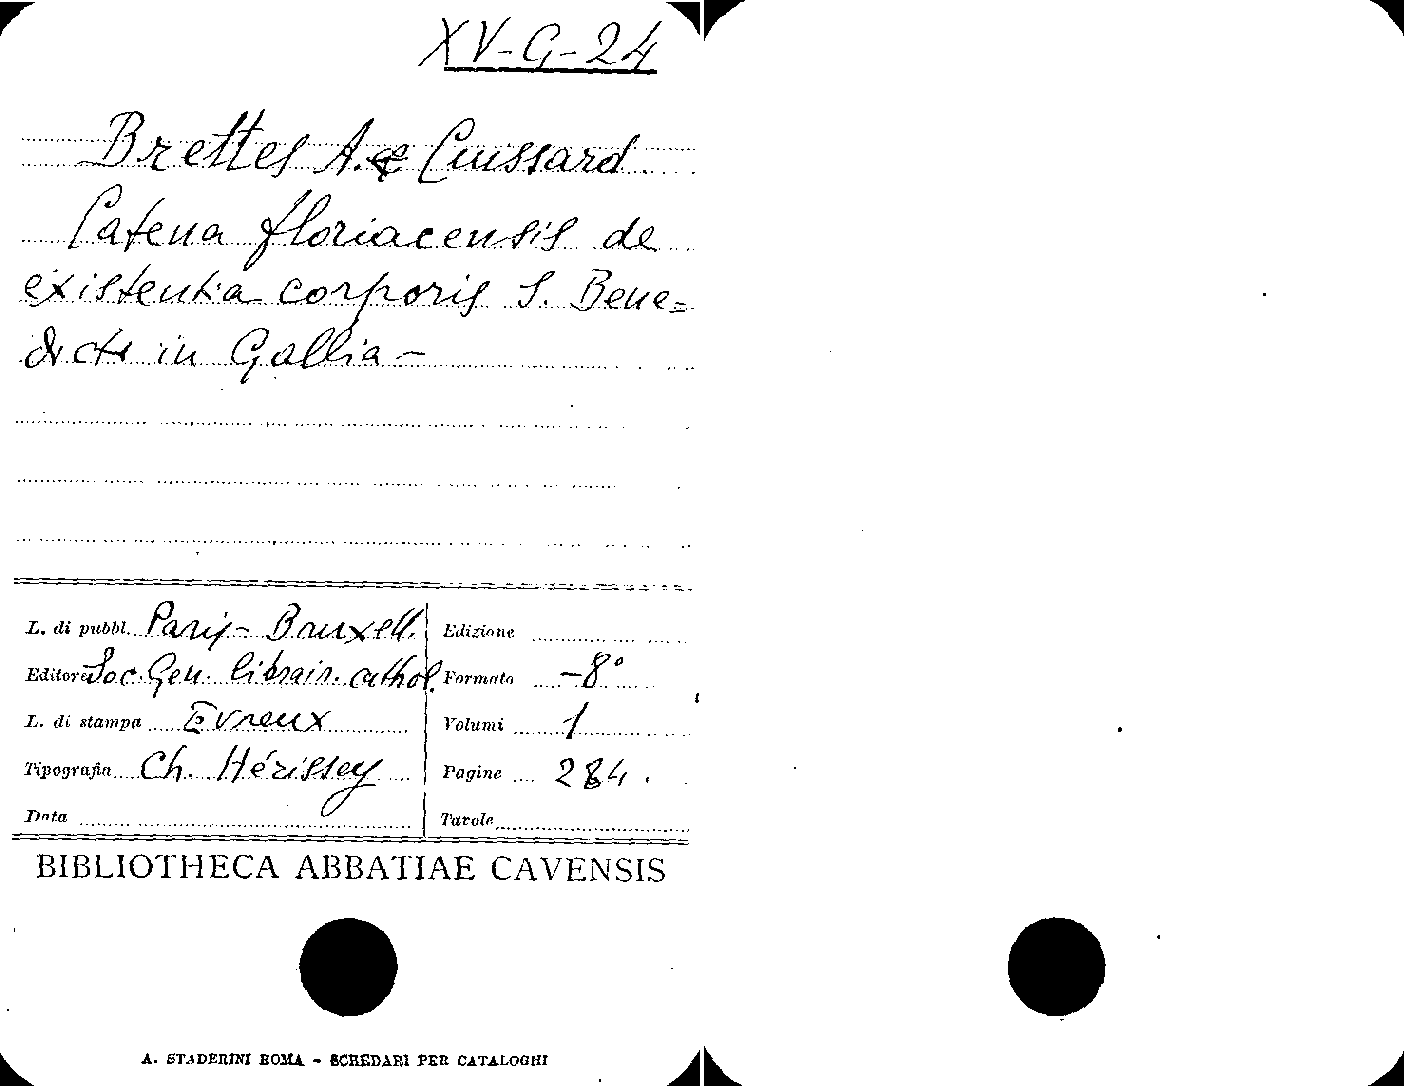 XV-G-24
Brettes A. e Cuissard.
Catena floriacensis de
existentia corporis S. Bene=
dicti in Gallia -
L. di pubbl. Paris - Bruxell.
Edizione
Editore Soc. Gen. librair. cathol.
Formato -8°
L. di stampa Evreux
Volumi 1
Tipografia Ch. Hérissey
Pagine 284.
Data
Tavole
BIBLIOTHECA ABBATIAE CAVENSIS
A. STADERINI ROMA - SCHEDARI PER CATALOGHI